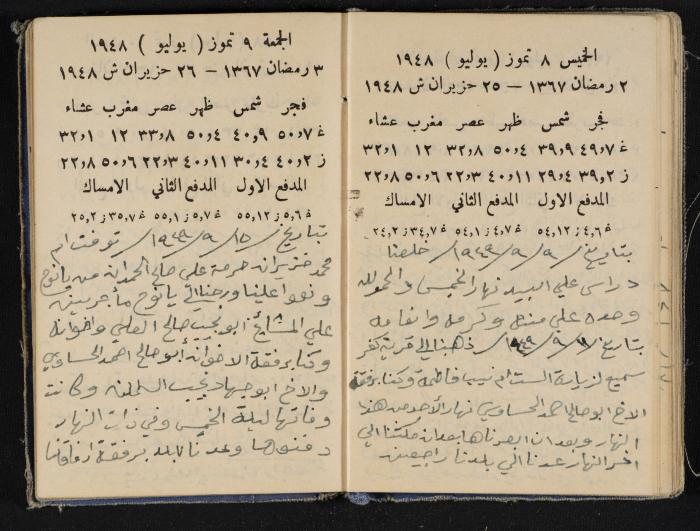 الخميس ٨ تموز ( يوليو ) ١٩٤٨
٢ رمضان ١٣٦٧ — ٢٥ حزيران ش ١٩٤٨
فجر شمس ظهر عصر مغرب عشاء
غ ٧و٤٩ ٩و٣٩ ٤و٥٠ ٨و٣٢ ١٢ ١و٣٢
ز ٢و٣٩ ٤و٢٩ ١١و٤٠ ٣و٢٢ ٦و٥٠ ٨و٢٢
المدفع الاول المدفع الثاني الامساك
غ ٦,٤ ز ١٢,٥٤ غ ٧,٤ ز ١,٥٤ غ ٧,٣٤ ز ٢,٢٤
بتاريخ ٩ / ٩ / ١٩٤٩ خلصنا
دراسي علي البيدر نهار الخميس والحمد لله
وحده علي فضله وكرمه وانعامه
بتاريخ ١١ / ٩ / ١٩٤٩ ذهبنا الي قرية كفر
سميع لزيارة الست ام نسيب فاطمة وكنا برفقة
الاخ ابو صالح احمد الحساوي نهار الأحد من هذا
النهار وبعد ان ابصرناها بعد ان مكثنا الي
اخر النهار عدنا الي بلدنا راجعين
الجمعة ٩ تموز ( يوليو ) ١٩٤٨
٣ رمضان ١٣٦٧ — ٢٦ حزيران ش ١٩٤٨
فجر شمس ظهر عصر مغرب عشاء
غ ٧و٥٠ ٩و٤٠ ٤و٥٠ ٨و٣٣ ١٢ ١و٣٢
ز ٢و٤٠ ٤و٣٠ ١١و٤٠ ٣و٢٢ ٦و٥٠ ٨و٢٢
المدفع الاول المدفع الثاني الامساك
غ ٦,٥ ز ١٢,٥٥ غ ٧,٥ ز ١,٥٥ غ ٧,٣٥ ز ٢,٢٥
بتاريخ ١٥ / ٩ / ١٩٤٩ توفت ام
محمد خزيرانه حرمة علي صالح الحمد من يانوح
ونعوا علينا ورحنا الي يانوح مأجرين
علي المشايخ ابو نجيب صالح العلي واخوانه
وكنا برفقة الاخوان أبو صالح احمد الحساوي
والاخ ابو جهاد نجيب وكانت
وفاتها ليلة الخميس وفي ذات النهار
دفنوها وعدنا لابلد برفقة ارفاقنا